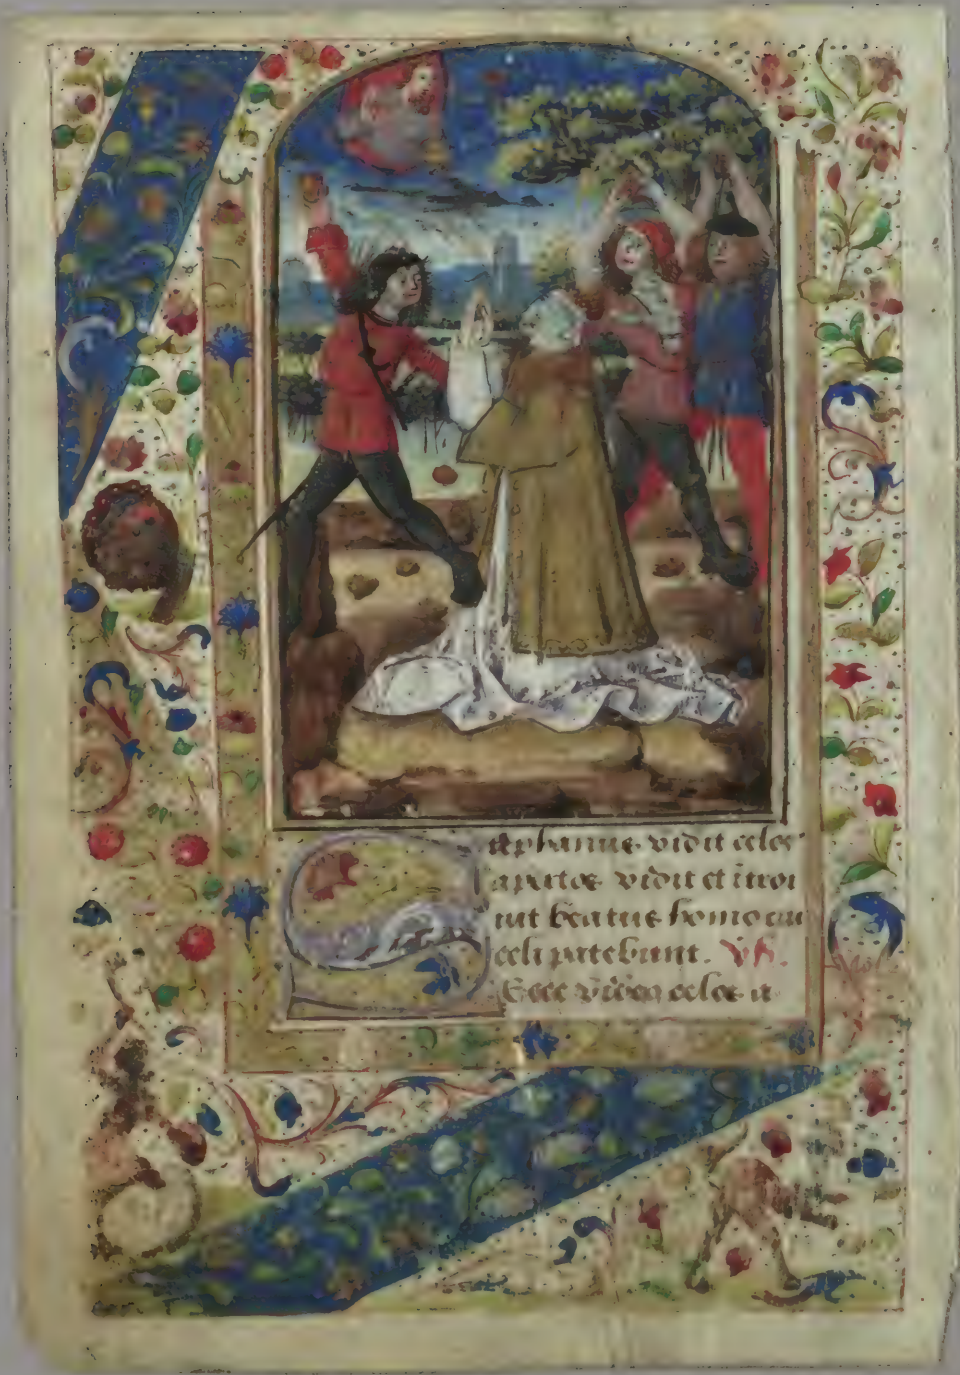 Stephanus vidit celos
apertos vidit et introi
uit beatus homo cui
celi patebant. Vs.
Ecce video celos a